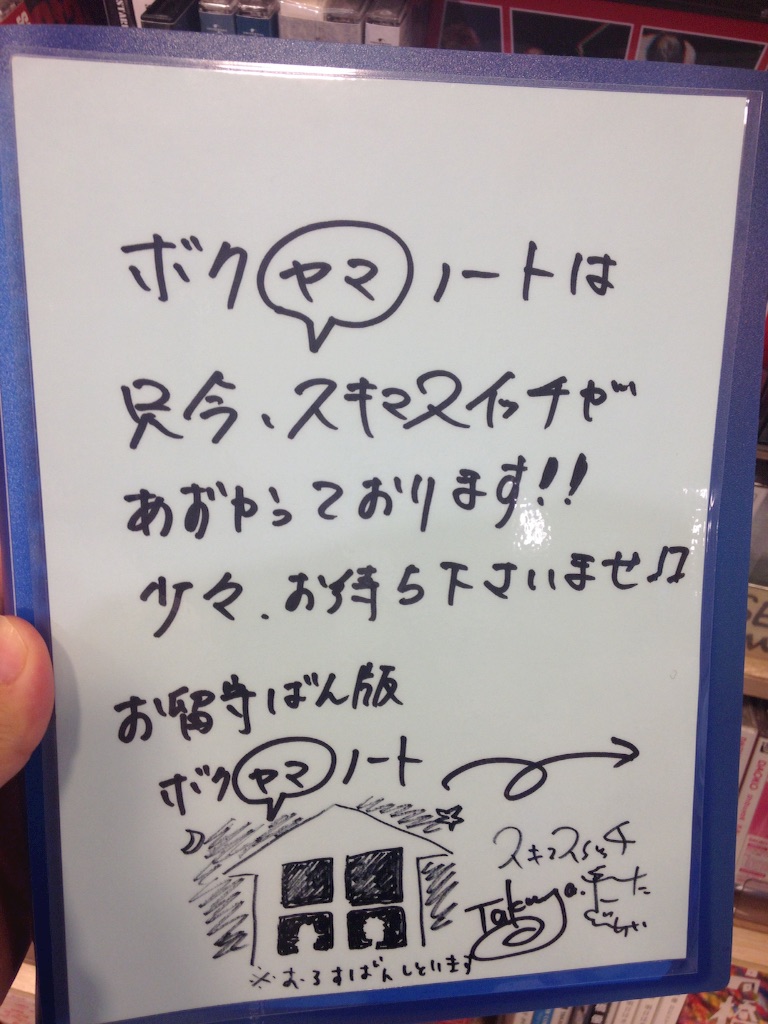 ボクヤマノートは
只今、スキマスイッチが
あおやっております!!
少々、お待ち下さいませ♫
お留守ばん版
ボクヤマノート
スキマスイッチ
Takuya.
※お・るすばんしています